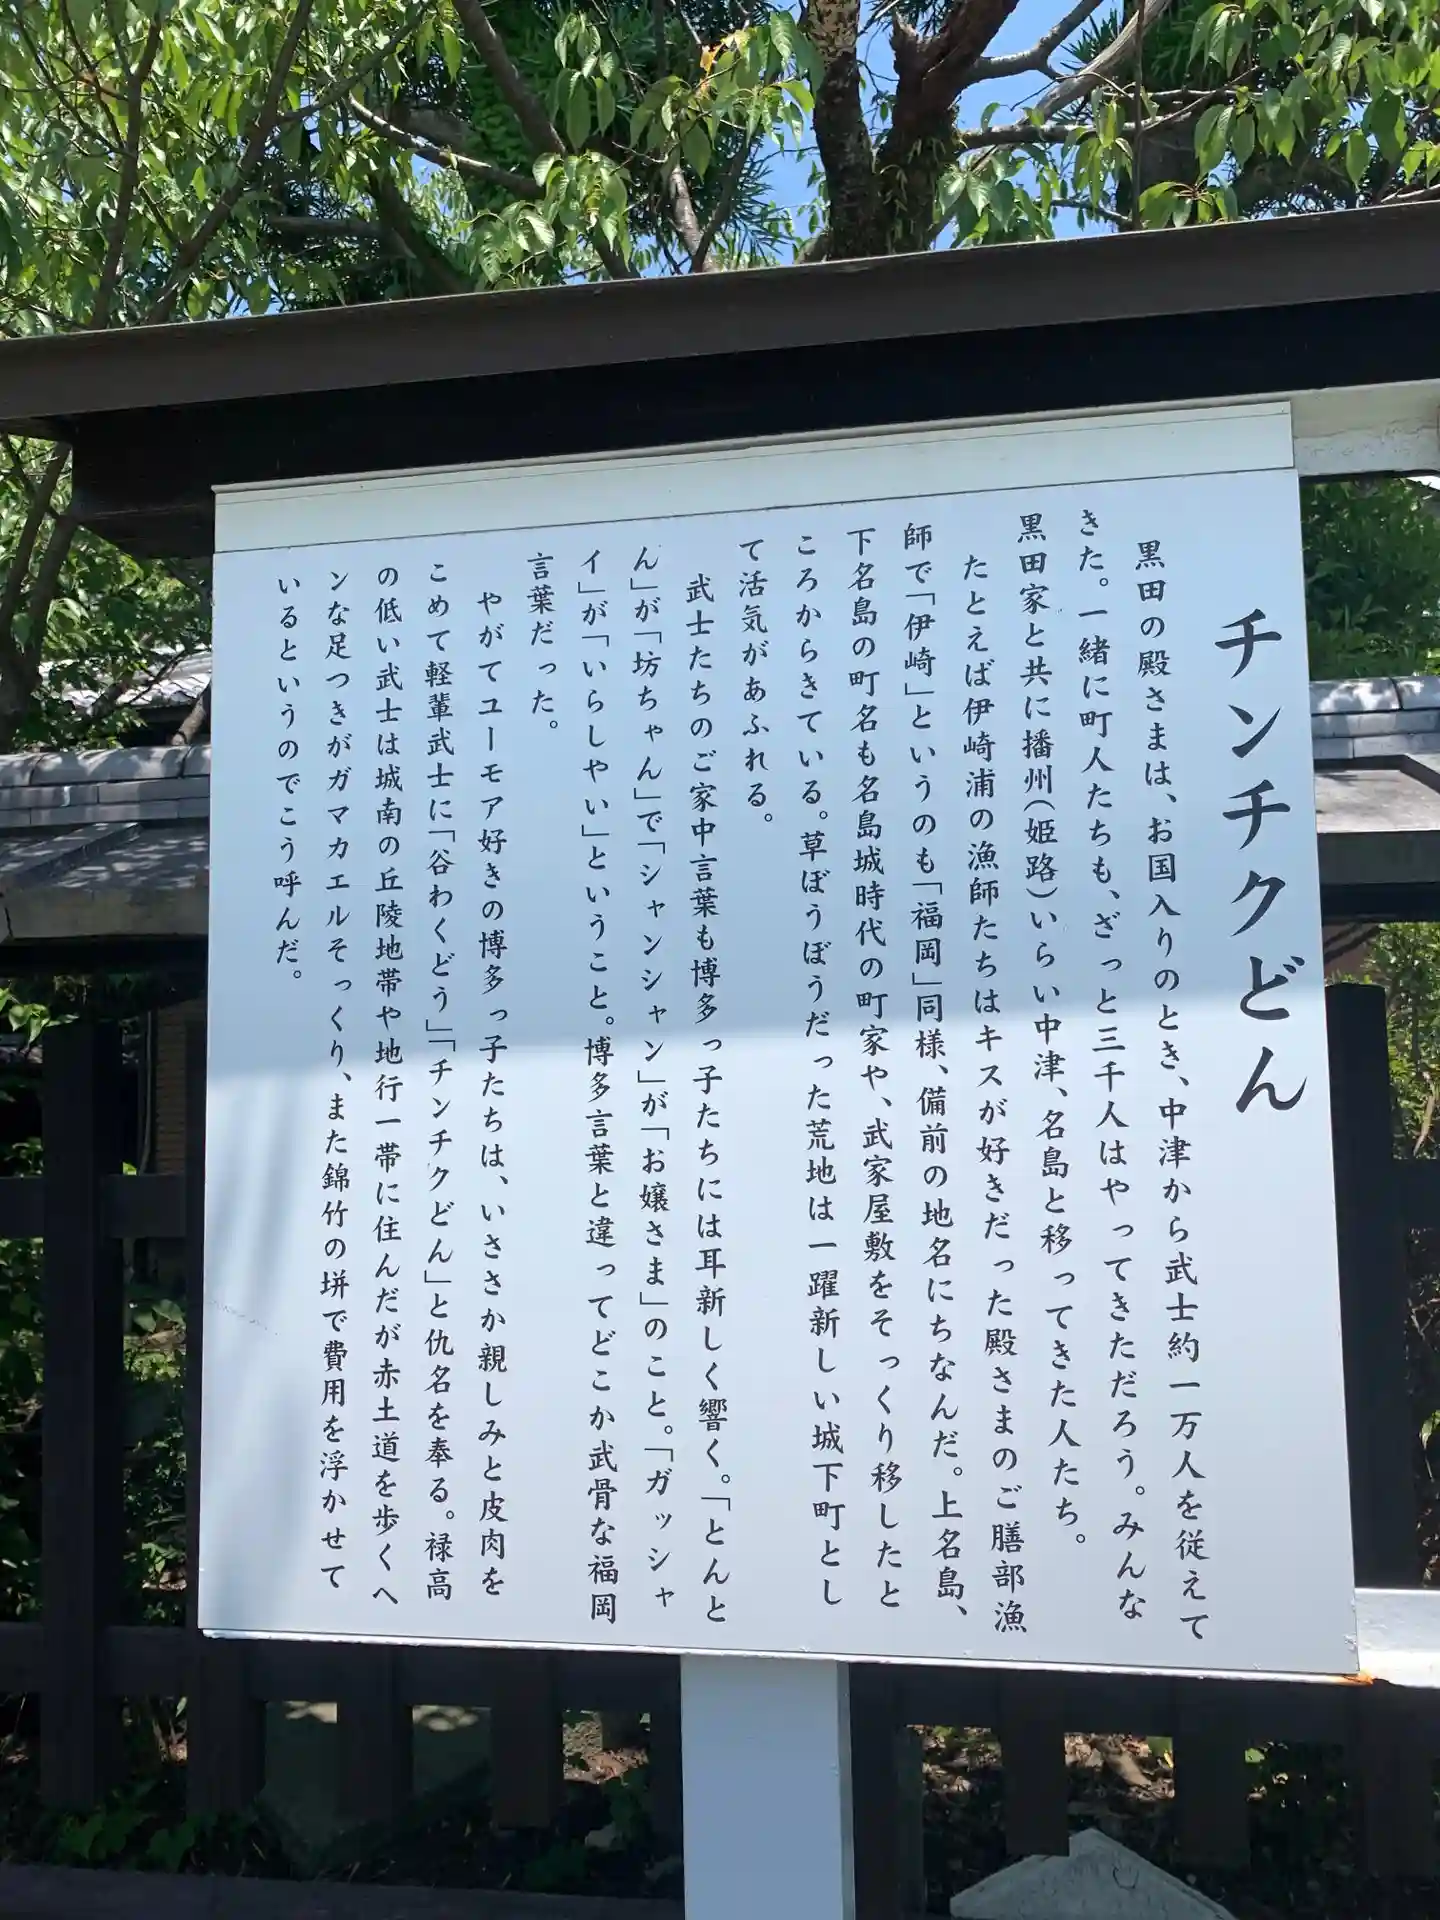 チンチクどん
黒田の殿さまは、お国入りのとき、中津から武士約一万人を従えて
きた。一緒に町人たちも、ざっと三千人はやってきただろう。みんな
黒田家と共に播州(姫路)いらい中津、名島と移ってきた人たち。
たとえば伊崎浦の漁師たちはキスが好きだった殿さまのご膳部漁
師で「伊崎」というのも「福岡」同様、備前の地名にちなんだ。上名島、
下名島の町名も名島城時代の町家や、武家屋敷をそっくり移したと
ころからきている。草ぼうぼうだった荒地は一躍新しい城下町とし
て活気があふれる。
武士たちのご家中言葉も博多っ子たちには耳新しく響く。「とんと
ん」が「坊ちゃん」で「シャンシャン」が「お嬢さま」のこと。「ガッシャ
イ」が「いらしやい」ということ。博多言葉と違ってどこか武骨な福岡
言葉だった。
やがてユーモア好きの博多っ子たちは、いささか親しみと皮肉を
こめて軽輩武士に「谷わくどう」「チンチクどん」と仇名を奉る。禄高
の低い武士は城南の丘陵地帯や地行一帯に住んだが赤土道を歩くへ
ンな足つきがガマカエルそっくり、また錦竹の垪で費用を浮かせて
いるというのでこう呼んだ。